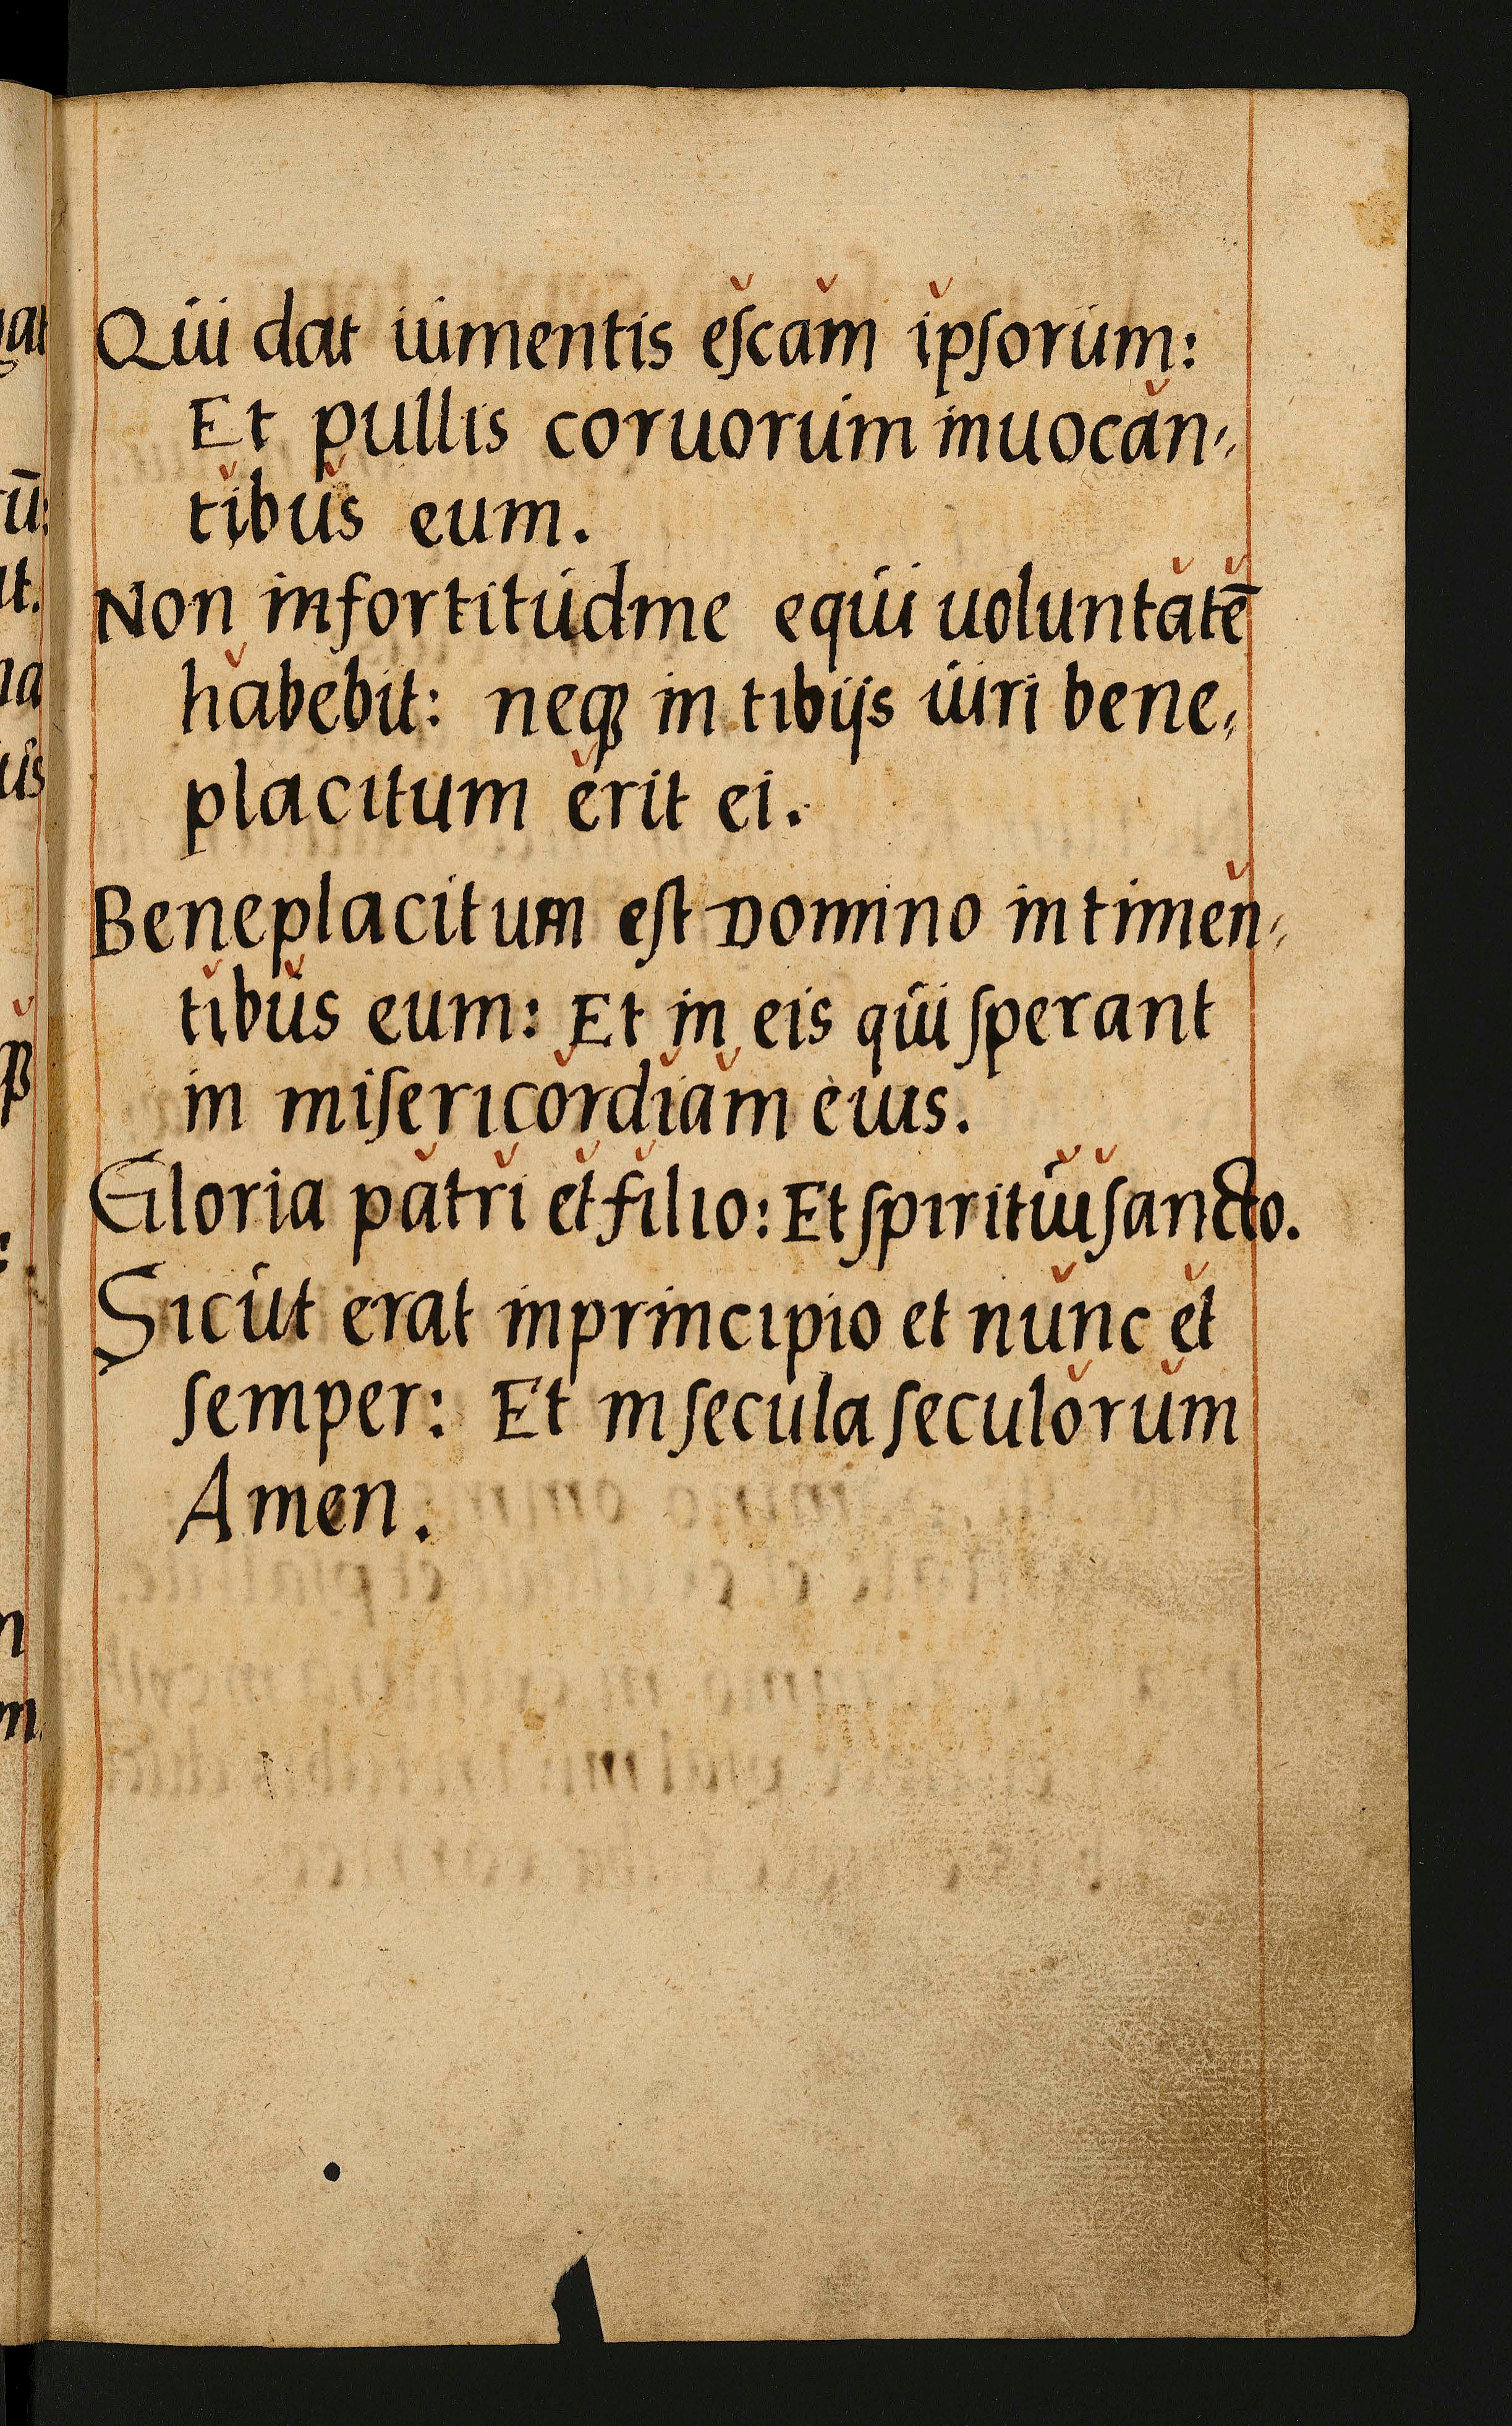 Qui dat iumentis eſcam ipſorum:
Et pullis coruorum inuocan-
tibus eum.
Non in fortitudine equi uoluntatē
habebit: neqꝫ in tibijs uiri bene-
placitum erit ei.
Beneplacitum eſt Domino in timen-
tibus eum: Et in eis qui ſperant
in miſericordiam eius.
Gloria patri et filio: Et ſpiritui ſancto.
Sicut erat in principio et nunc et
ſemper: Et in ſecula ſeculorum
Amen.